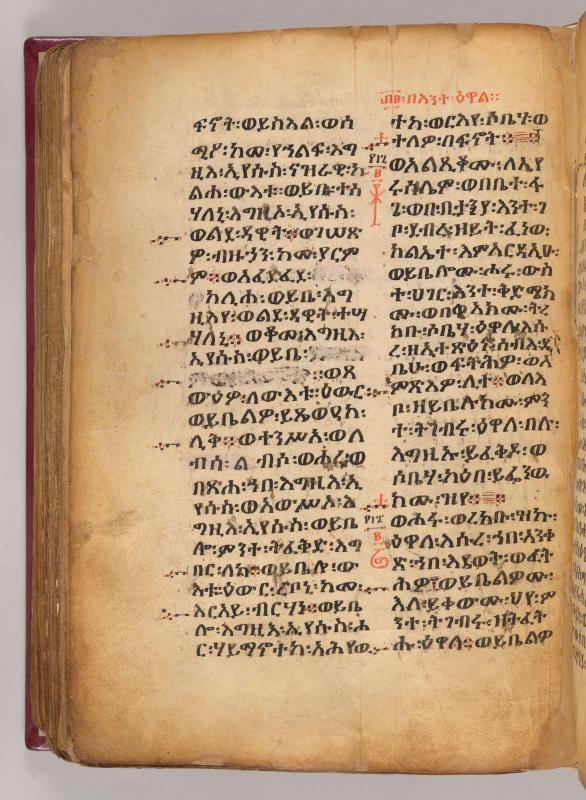 ፍኖት፡ወይስእል፡ወሰ
ሚዖ፡ከመ፡የኀልፍ፡እግ
ዚእ፡ኢየሱስ፡ናዝራዊ፡ከ
ልሐ፡ውእቱ፡ወይቤ፡ተሣ
ሃለኒ፡እግዚኦ፡ኢየሱስ፡
ወልደ፡ዳዊት፡፡ወገሠጽ
ዎ፡ብዙኃን፡ከመ፡ያርም
ም፡ወአፈድፈደ፡
ከሊሐ፡ወይቤ፡እግ
ዚእየ፡ወልደ፡ዳዊት፡ተሣ
ሃለኒ፡፡ወቆመ፡እግዚእ፡
ኢየሱስ፡ወይቤ፡
፡፡ወጸ
ውዕዎ፡ለውእቱ፡ዕውር፡
ወይቤልዎ፡ይጼውዐከ፡
ሊቅ፡፡ወተንሥአ፡ወለ
ብሰ፡ልብሶ፡ወሖረ፡ወ
በጽሐ፡ኀበ፡እግዚእ፡ኢ
የሱስ፡ወአውሥአ፡እ
ግዚእ፡ኢየሱስ፡ወይቤ
ሎ፡ምንተ፡ትፈቅድ፡እግ
በር፡ለከ፡፡ወይቤሎ፡ው
እቱ፡ዕውር፡ረቦኒ፡ከመ፡
እርአይ፡ብርሃነ፡፡ወይቤ
ሎ፡እግዚእ፡ኢየሱስ፡ሖ
ር፡ሃይማኖትከ፡አሕየወ
፴፪፡በእንተ፡ዕዋል፡፡
ተከ፡ወርእየ፡ሶቤሃ፡ወ
ተለዎ፡በፍኖት፡፡
ወአልጺቆሙ፡ለኢየ
ሩሳሌም፡ወበቤተ፡ፋ
ጌ፡ወበቢታንያ፡እንተ፡ገ
ቦ፡ደብረ፡ዘይት፡ፈነወ፡
ክልኤተ፡እምአርዳኢሁ፡
ወይቤሎሙ፡ሖሩ፡ውስ
ተ፡ሀገር፡እንተ፡ቅድሜክ
ሙ፡ወበዊአክሙ፡ትረ
ክቡ፡ሶቤሃ፡ዕዋለ፡እሱ
ረ፡ዘኢተጽዕነ፡ሰብእ፡ዲ
ቤሁ፡ወፍትሕዎ፡ወአ
ምጽእዎ፡ሊተ፡፡ወለእ
ቦ፡ዘይቤለክሙ፡ምን
ተ፡ትገብሩ፡ዕዋለ፡በሉ፡
እግዚኡ፡ይፈቅዶ፡ወ
ሶቤሃ፡ካዕበ፡ይፌንዉ
ክሙ፡ዝየ፡፡
ወሖሩ፡ወረከቡ፡ዝኩ፡
ዕዋለ፡እሱረ፡ኀበ፡አንቀ
ጽ፡ኀበ፡አፍኦት፡ወፈት
ሕዎ፡ወይቤልዎሙ፡
እለ፡ይቀውሙ፡ህየ፡ም
ንተ፡ትገብሩ፡ዘትፈት
ሑ፡ዕዋለ፡፡ወይቤልዎ